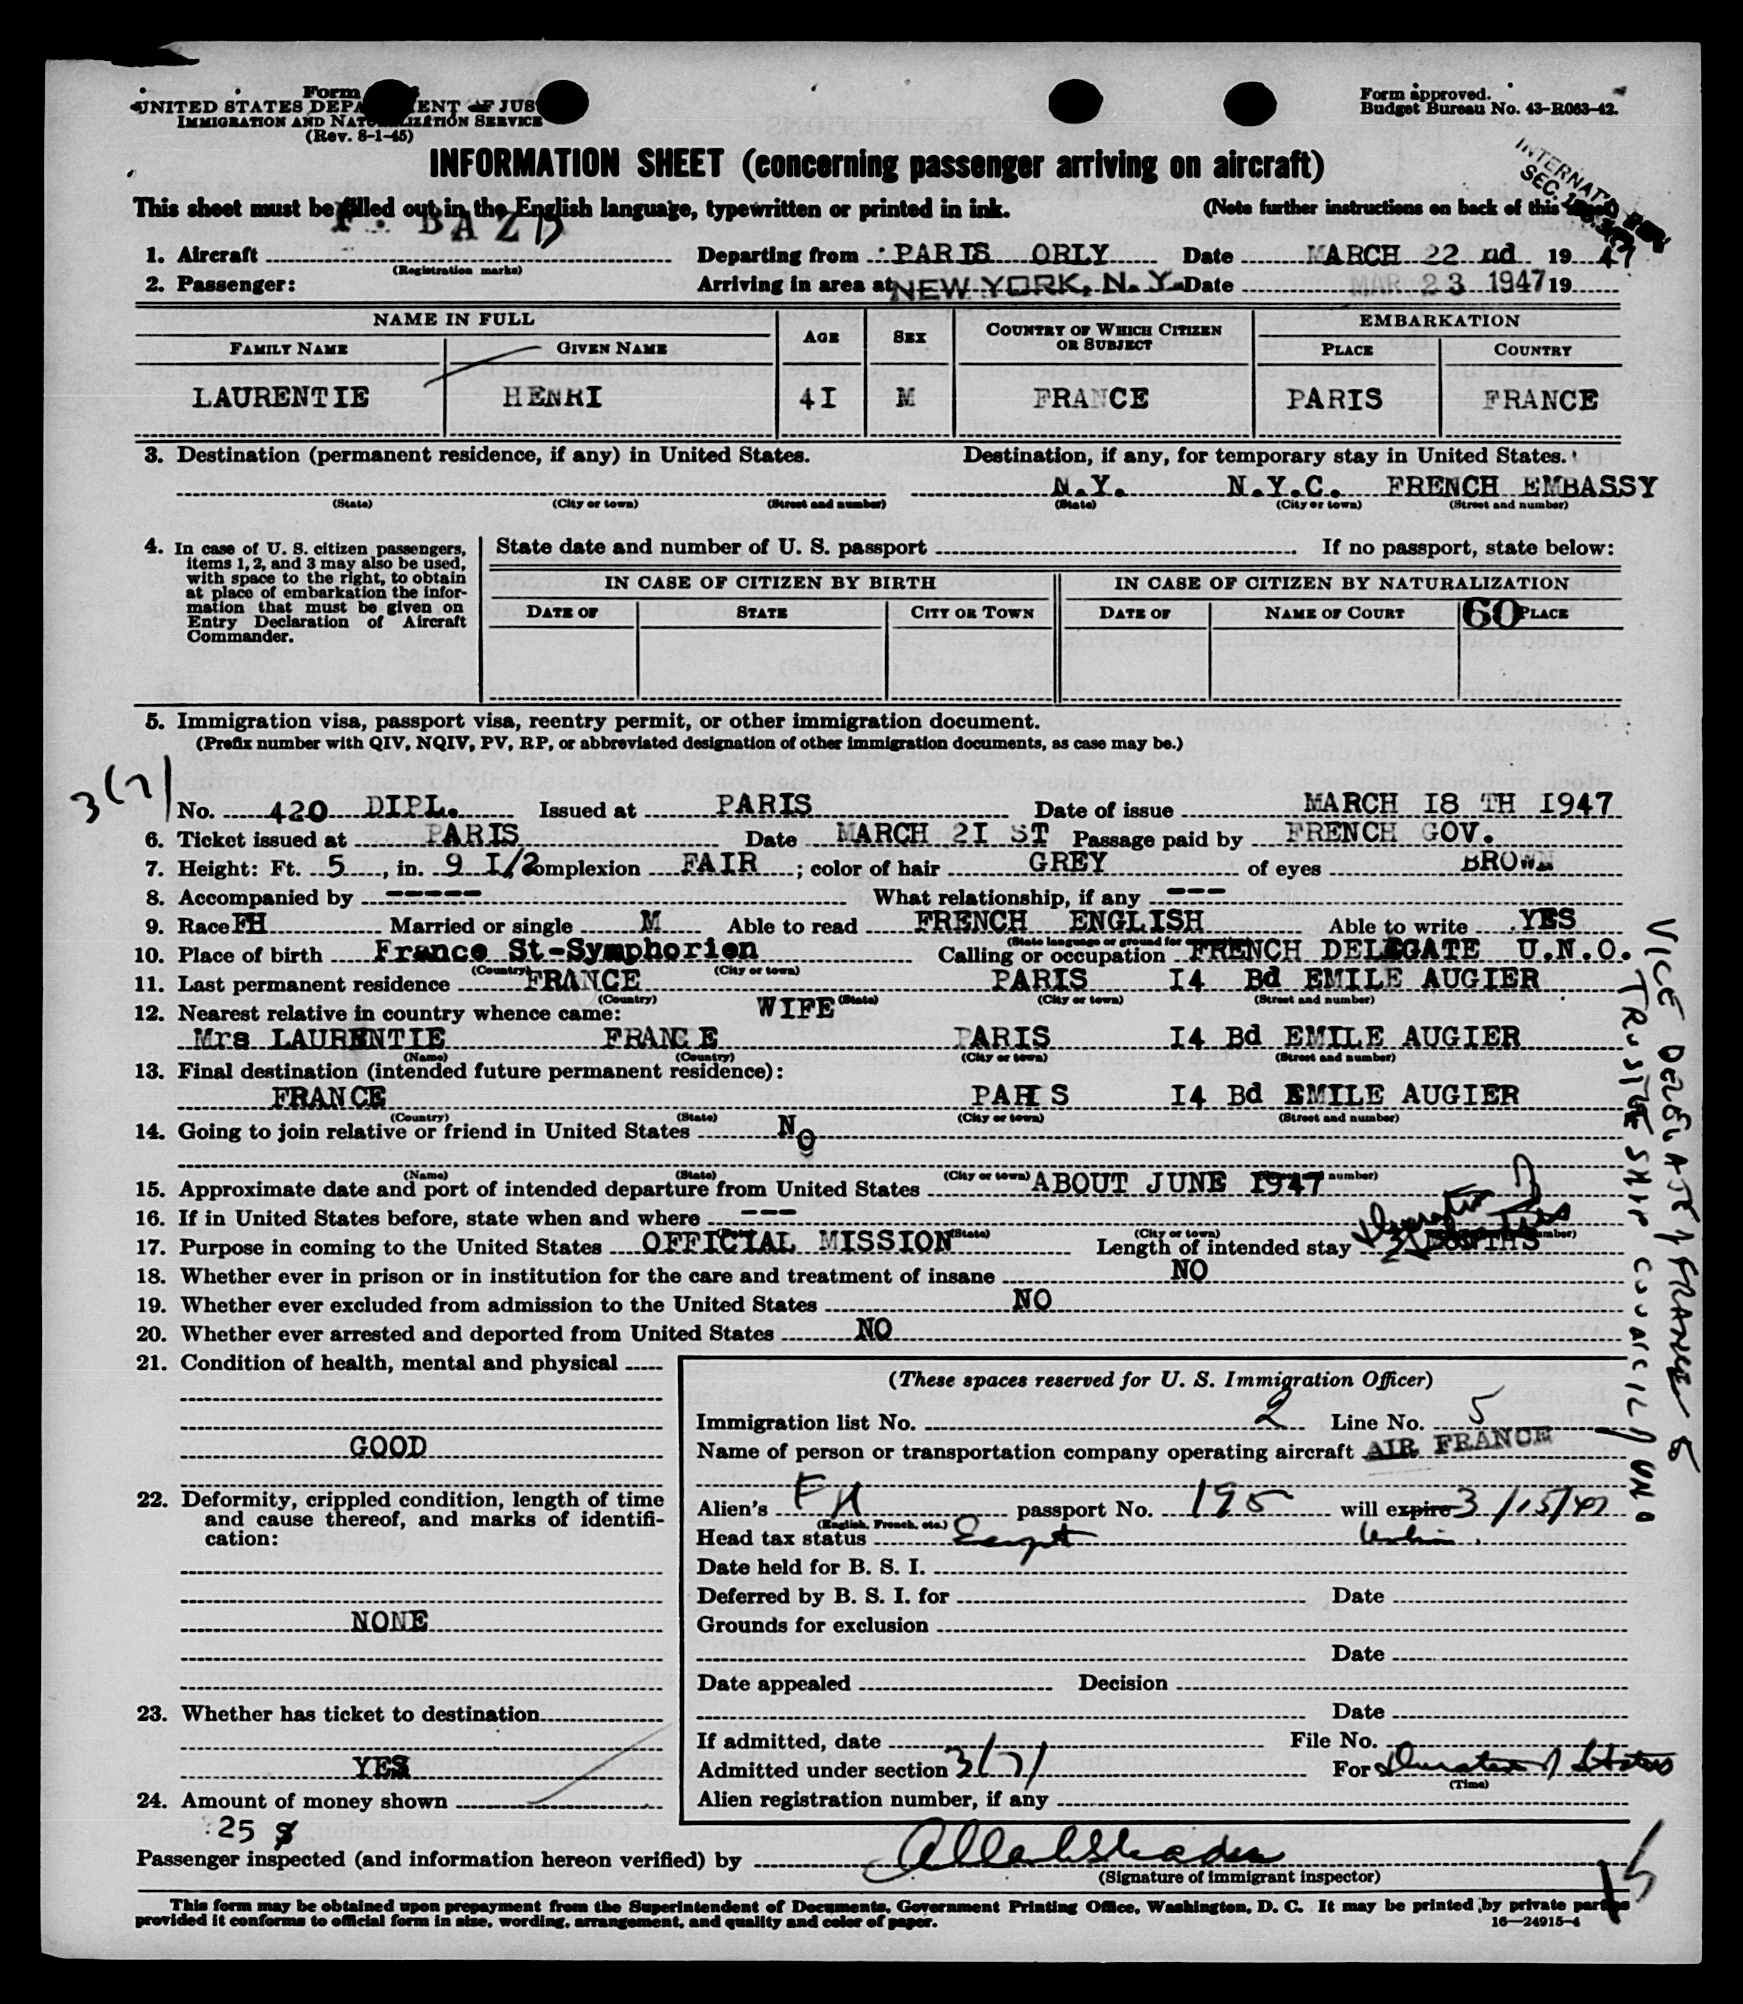 Form
UNITED STATES DEPA ENT OF JUS
IMMIGRATION AND NATURALIZATION SERVICE
(Rev. 8-1-45)
Form approved.
Budget Bureau No. 43-R063-42.
INFORMATION SHEET (concerning passenger arriving on aircraft)
This sheet must be filled out in the English language, typewritten or printed in ink.
(Note further instructions on back of this
F. BAZD
1. Aircraft Departing from PARIS ORLY Date MARCH 22 nd 19 47
(Registration marks)
2. Passenger: Arriving in area at NEW YORK, N. Y. Date MAR 23 1947 19
NAME IN FULL
FAMILY NAME GIVEN NAME AGE SEX COUNTRY OF WHICH CITIZEN OR SUBJECT EMBARKATION
PLACE COUNTRY
LAURENTIE HENRI 4I M FRANCE PARIS FRANCE
3. Destination (permanent residence, if any) in United States. Destination, if any, for temporary stay in United States.
N.Y. N.Y.C. FRENCH EMBASSY
(State) (City or town) (Street and number) (State) (City or town) (Street and number)
4. In case of U. S. citizen passengers,
items 1, 2, and 3 may also be used,
with space to the right, to obtain
at place of embarkation the infor-
mation that must be given on
Entry Declaration of Aircraft
Commander.
State date and number of U. S. passport If no passport, state below:
IN CASE OF CITIZEN BY BIRTH IN CASE OF CITIZEN BY NATURALIZATION
DATE OF STATE CITY OR TOWN DATE OF NAME OF COURT 60 PLACE
5. Immigration visa, passport visa, reentry permit, or other immigration document.
(Prefix number with QIV, NQIV, PV, RP, or abbreviated designation of other immigration documents, as case may be.)
3(7)
No. 420 DIPL. Issued at PARIS Date of issue MARCH I8 TH I947
6. Ticket issued at PARIS Date MARCH 2I ST Passage paid by FRENCH GOV.
7. Height: Ft. 5, in. 9 I/2 omplexion FAIR; color of hair GREY of eyes BROWN
8. Accompanied by ----- What relationship, if any ---
9. Race FH Married or single M Able to read FRENCH ENGLISH Able to write YES
10. Place of birth France St-Symphorien Calling or occupation FRENCH DELEGATE U.N.O.
(Country) (City or town)
11. Last permanent residence FRANCE PARIS I4 Bd EMILE AUGIER
(Country) (State) (City or town) (Street and number)
12. Nearest relative in country whence came: WIFE
Mrs LAURENTIE FRANCE PARIS I4 Bd EMILE AUGIER
(Name) (Country) (City or town) (Street and number)
13. Final destination (intended future permanent residence):
FRANCE PARIS I4 Bd EMILE AUGIER
(Country) (State) (City or town) (Street and number)
14. Going to join relative or friend in United States NO
(Name) (State) (City or town) number)
15. Approximate date and port of intended departure from United States ABOUT JUNE I947
16. If in United States before, state when and where ---
(State) (City or town)
17. Purpose in coming to the United States OFFICIAL MISSION Length of intended stay
18. Whether ever in prison or in institution for the care and treatment of insane NO
19. Whether ever excluded from admission to the United States NO
20. Whether ever arrested and deported from United States NO
VICE DELEGATE of FRANCE to
TRUSTEESHIP COUNCIL of UNO
21. Condition of health, mental and physical
GOOD
22. Deformity, crippled condition, length of time
and cause thereof, and marks of identifi-
cation:
NONE
23. Whether has ticket to destination
YES
24. Amount of money shown
25 $
(These spaces reserved for U. S. Immigration Officer)
Immigration list No. 2 Line No. 5
Name of person or transportation company operating aircraft AIR FRANCE
Alien's FH passport No. 195 will expire 3/15/
(English, French, etc.)
Head tax status Exempt
Date held for B. S. I.
Deferred by B. S. I. for Date
Grounds for exclusion
Date
Date appealed Decision
Date
If admitted, date File No.
Admitted under section 3(7) For Duration of Status
(Time)
Alien registration number, if any
Passenger inspected (and information hereon verified) by
(Signature of immigrant inspector)
This form may be obtained upon prepayment from the Superintendent of Documents, Government Printing Office, Washington, D. C. It may be printed by private parties
provided it conforms to official form in size, wording, arrangement, and quality and color of paper.
16—24915-4